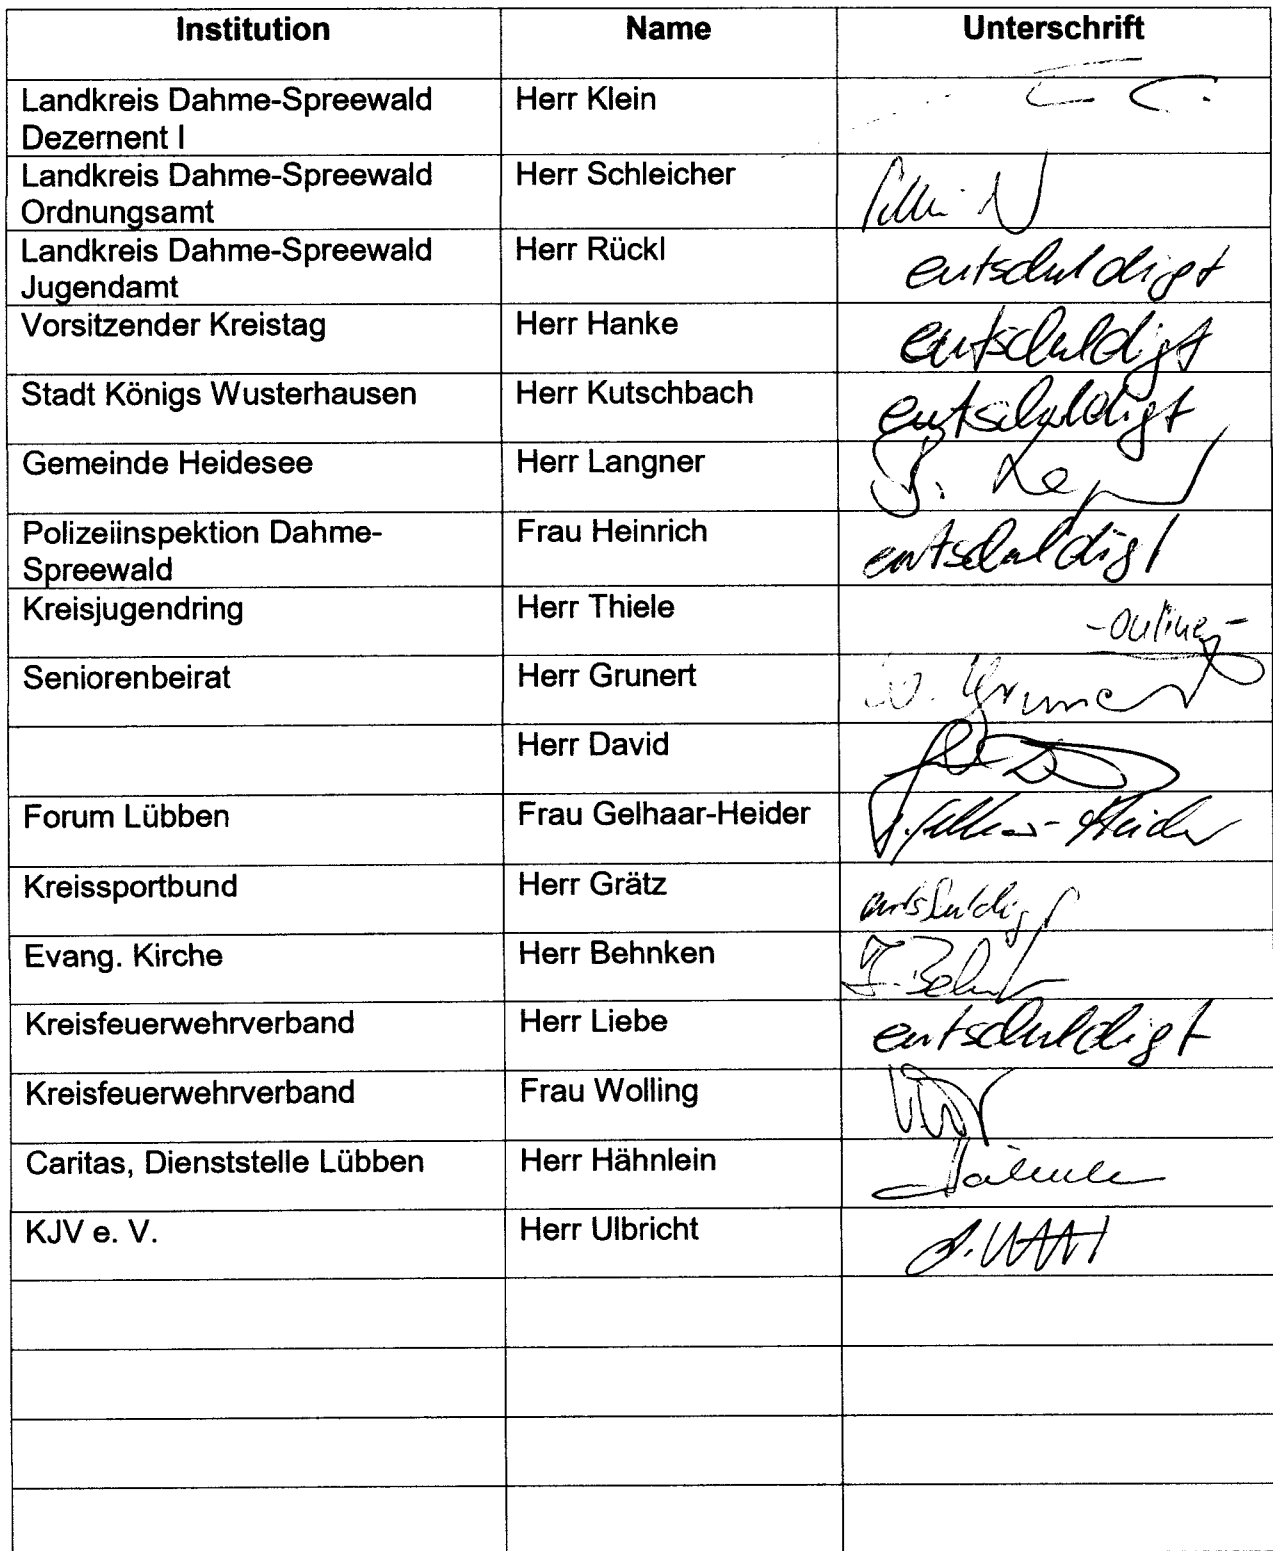 Institution Name Unterschrift
Landkreis Dahme-Spreewald Herr Klein
Dezernent I
Landkreis Dahme-Spreewald Herr Schleicher
Ordnungsamt
Landkreis Dahme-Spreewald Herr Rückl entschuldigt
Jugendamt
Vorsitzender Kreistag Herr Hanke entschuldigt
Stadt Königs Wusterhausen Herr Kutschbach entschuldigt
Gemeinde Heidesee Herr Langner
Polizeiinspektion Dahme- Frau Heinrich entschuldigt
Spreewald
Kreisjugendring Herr Thiele -online-
Seniorenbeirat Herr Grunert
Herr David
Forum Lübben Frau Gelhaar-Heider
Kreissportbund Herr Grätz entschuldigt
Evang. Kirche Herr Behnken
Kreisfeuerwehrverband Herr Liebe entschuldigt
Kreisfeuerwehrverband Frau Wolling
Caritas, Dienststelle Lübben Herr Hähnlein
KJV e. V. Herr Ulbricht